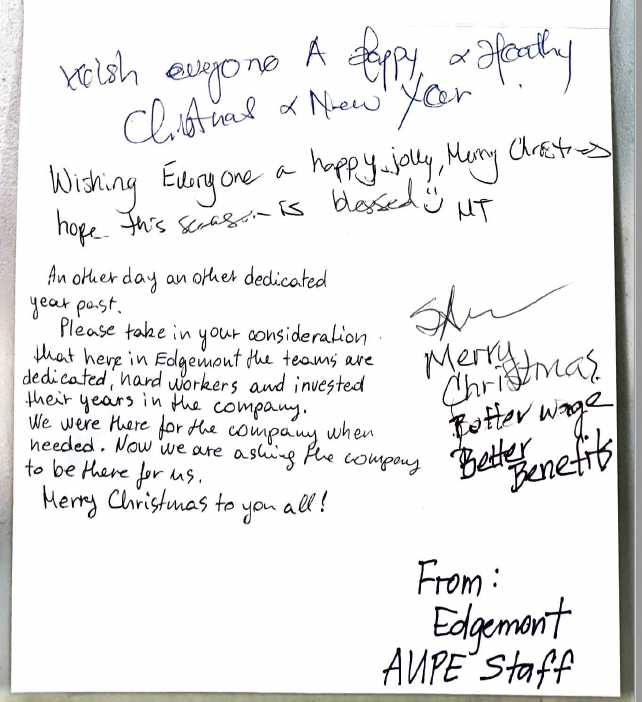 Wish everyone A Happy & Healthy
Christmas & New Year
Wishing Everyone a happy, jolly, Merry Christmas
hope this season is blessed MT
An other day an other dedicated
year past.
Please take in your consideration
that here in Edgemont the teams are
dedicated, hard workers and invested
their years in the company.
We were there for the company when
needed. Now we are asking the company
to be there for us.
Merry Christmas to you all!
Merry
Christmas
Better wage
Better
Benefits
From:
Edgemont
AUPE Staff